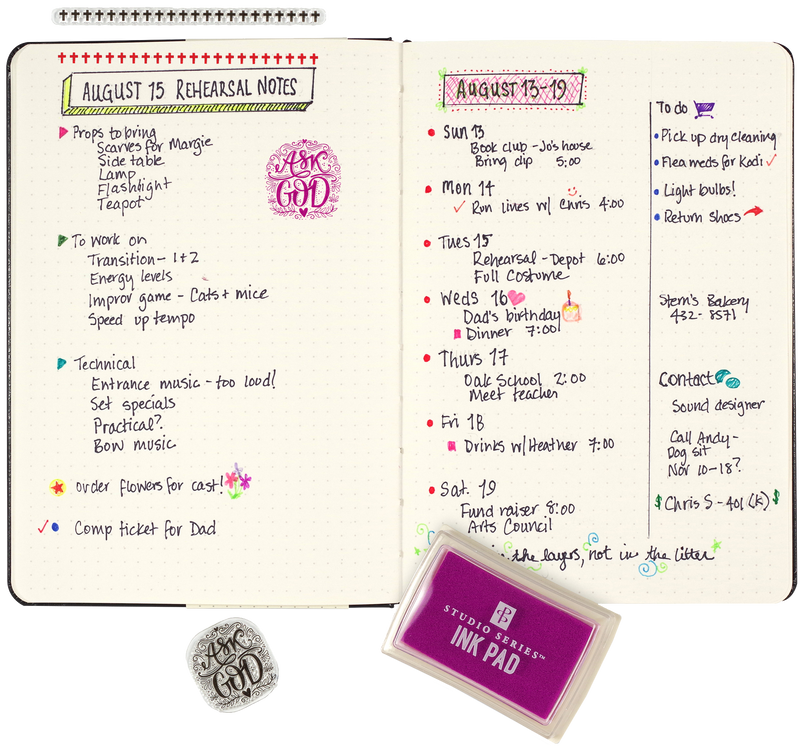 AUGUST 15 REHEARSAL NOTES
Props to bring
Scarves for Margie
Side table
Lamp
Flashlight
Teapot
ASK
GOD
To work on
Transition - 1+2
Energy levels
Improv game - Cats + mice
Speed up tempo
Technical
Entrance music - too loud!
Set specials
Practical?
Bow music
order flowers for cast!
Comp ticket for Dad
AUGUST 13-19
Sun 13
Book club - Jo's house
Bring dip 5:00
Mon 14
Run lines w/ Chris 4:00
Tues 15
Rehearsal - Depot 6:00
Full Costume
Weds 16
Dad's birthday
Dinner 7:00
Thurs 17
Oak School 2:00
Meet teacher
Fri 18
Drinks w/ Heather 7:00
Sat. 19
Fund raiser 8:00
Arts Council
the layers, not in the litter
To do
Pick up dry cleaning
Flea meds for Kodi
Light bulbs!
Return shoes
Stern's Bakery
432-8571
Contact
Sound designer
Call Andy -
Dog sit
Nov 10-18?
$ Chris S - 401 (k) $
ASK
GOD
STUDIO SERIES™
INK PAD